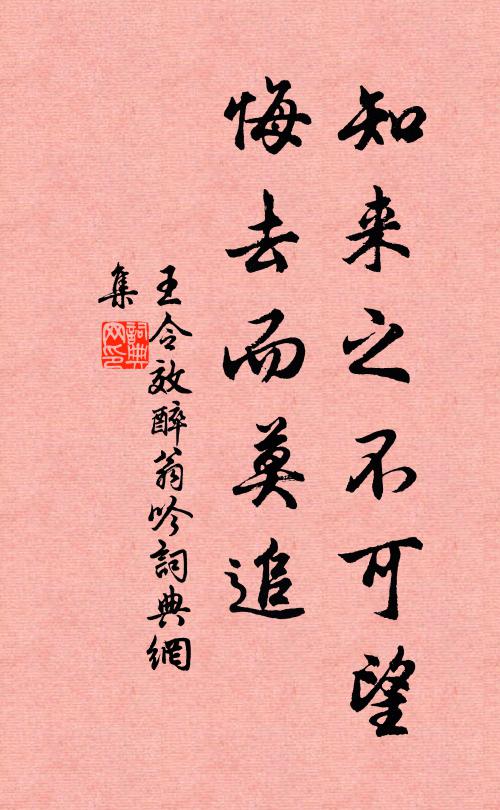 知来之不可望
悔去而莫追
王令效醉翁吟詞典網
集
詞典网印